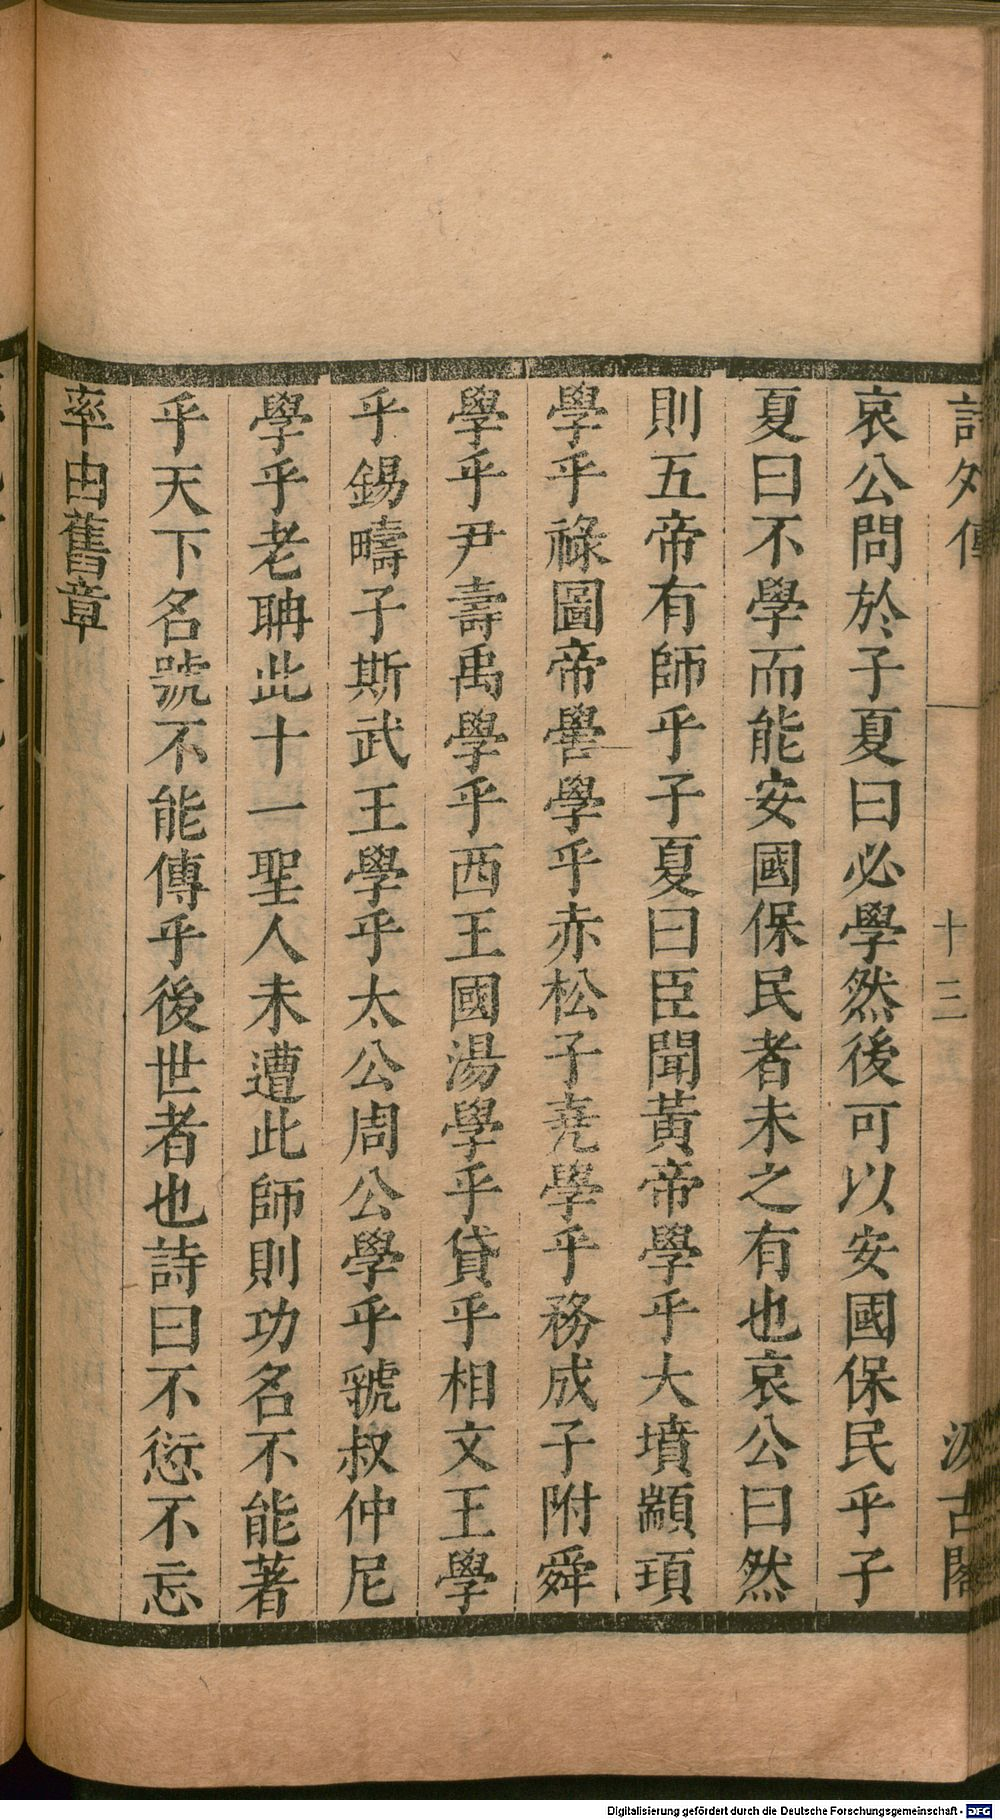 詩外傳
十三
汲古閣
哀公問於子夏曰必學然後可以安國保民乎子
夏曰不學而能安國保民者未之有也哀公曰然
則五帝有師乎子夏曰臣聞黃帝學乎大墳顓頊
學乎祿圖帝嚳學乎赤松子堯學乎務成子附舜
學乎尹壽禹學乎西王國湯學乎貸乎相文王學
乎錫疇子斯武王學乎太公周公學乎虢叔仲尼
學乎老聃此十一聖人未遭此師則功名不能著
乎天下名號不能傳乎後世者也詩曰不愆不忘
率由舊章
Digitalisierung gefördert durch die Deutsche Forschungsgemeinschaft - DFG